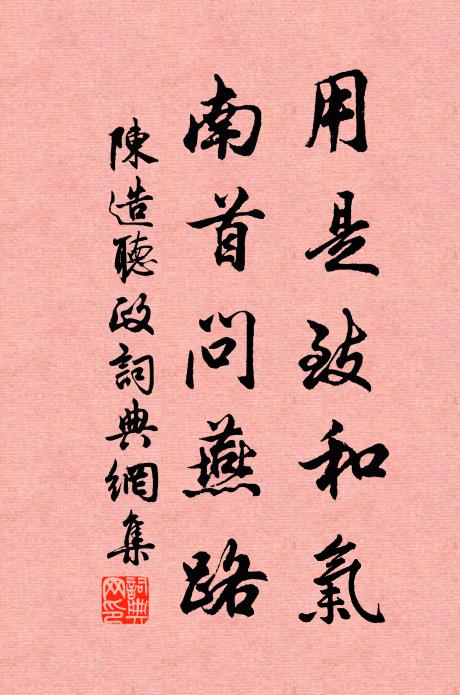 用是致和氣
南首問燕路
陳造聽政詞典網集
詞典
网印